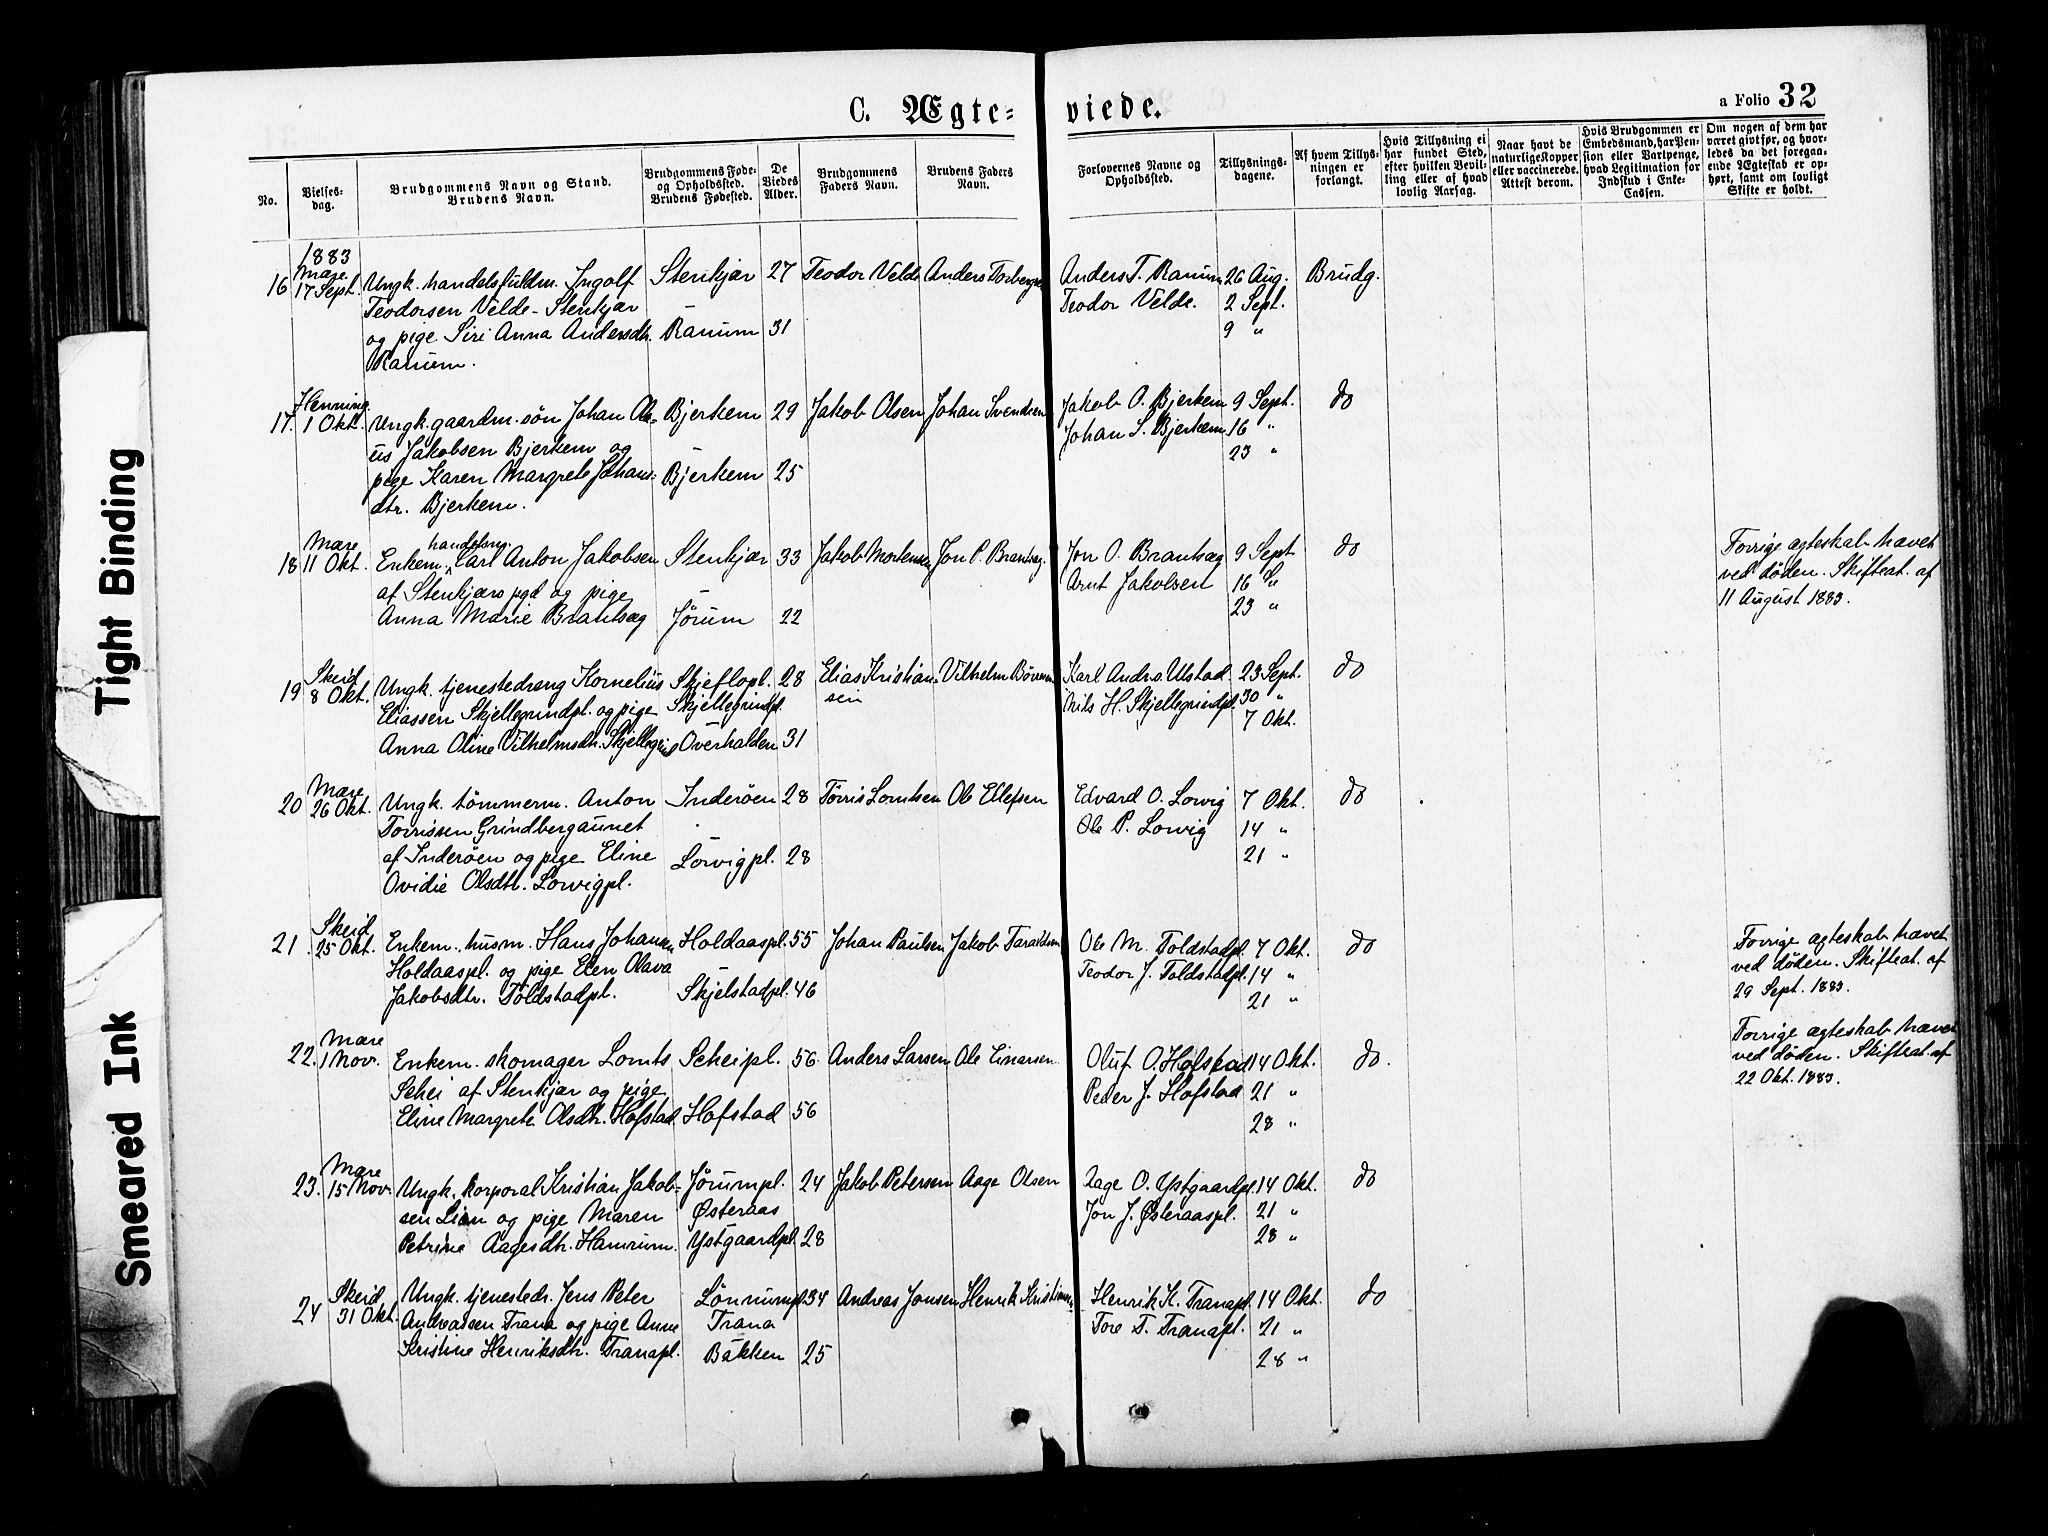 C. Ægte-
viede.
a Folio 32
No.
Vielses-
dag.
Brudgommens Navn og Stand.
Brudens Navn.
Brudgommens Føde-
og Opholdssted.
Brudens Fødested.
De
Viedes
Alder.
Brudgommens
Faders Navn.
Brudens Faders
Navn.
Forlovernes Navne og
Opholdssted.
Tillysnings-
dagene.
Af hvem Tillys-
ningen er
forlangt.
Hvis Tillysning ei
har fundet Sted,
efter hvilken Bevil-
ling eller af hvad
lovlig Aarsag.
Naar havt de
naturlige Kopper
eller vaccinerede.
Attest derom.
Hvis Brudgommen er
Embedsmand, har Pen-
sion eller Vartpenge,
hvad Legitimation for
Indskud i Enke-
Cassen.
Om nogen af dem har
været gift før, og hvor-
ledes da det foregaa-
ende Ægteskab er op-
hørt, samt om lovligt
Skifte er holdt.
1883
Mære
16 17 Sept. Ungk. handelsfuldm. Ingolf Stenkjær 27 Teodor Velde Anders Torbergsen Anders T. Ranum 26 Aug. Brudg.
Teodorsen Velde - Stenkjær Teodor Velde. 2 Sept.
og pige Siri Anna Andersdtr. Ranum 31 9 "
Ranum.
Henning
17. 1 Okt. Ungk. gaardm. søn Johan Ole- Bjerkem 29 Jakob Olsen Johan Svendsen Jakob O. Bjerkem 9 Sept. do
us Jakobsen Bjerkem og Johan S. Bjerkem 16 "
23 "
pige Karen Margrete Johans- Bjerkem 25
dtr. Bjerkem.
Mære
handelsm.
18 11 Okt. Enkem. Carl Anton Jakobsen Stenkjær 33 Jakob Mortensen Jon P. Brandsæg. Jon O. Brandsæg 9 Sept do
af Stenkjær og pige Arnt Jakobsen 16 S"
Anna Marie Brandsæg Jørum 22 23 "
Forrige ægteskab hævet
ved døden. Skifteat. af
11 August 1883.
Skeid
19 8 Okt. Ungk. tjenestedreng Kornelius Skjeflopl. 28 Elias Kristian- Vilhelm Karl Andr. Ulstad 23 Sept. do
sen
Eliassen Skjellegrindpl. og pige Skjellegrindpl. Nils H. Skjellegrindpl. 30 "
7 Okt.
Anna Oline Vilhelmsdtr. Overhalden 31
Mære
20 26 Okt. Ungk. tømmerm. Anton Inderøen 28 Torris Lomtsen Ole Ellefsen Edvard O. Lorvig 7 Okt. do
Torrissen Grindbergaunet Ole P. Lorvig 14 "
af Inderøen og pige Eline Lorvigpl. 28 21 "
Ovidie Olsdtr. Lorvigpl.
Skeid
21 25 Okt. Enkem. husm. Hans Johansen Holdaaspl. 55 Johan Paulsen Jakob Taraldsen Ole M. Foldstadpl. 7 Okt. do
Holdaaspl. og pige Elen Olava Teodor J. Foldstadpl. 14 "
Jakobsdtr. Foldstadpl. Skjelstadpl. 46 21 "
Forrige ægteskab hævet
ved døden. Skifteat. af
29 Sept. 1883.
Mære
22. 1 Nov. Enkem. skomager Lomts Scheipl. 56 Anders Larsen Ole Einarsen Oluf O. Hofstad 14 Okt. do.
Schei af Stenkjær og pige Peder J. Hofstad 21 "
Eline Margrete Olsdtr. Hofstad Hofstad 56 28 "
Forrige ægteskab hævet
ved døden. Skifteat. af
22 Okt. 1883.
Mære
23. 15 Nov. Ungk. korporal Kristian Jakob- Jørumpl. 24 Jakob Petersen Aage Olsen Aage O. Ystgaardpl. 14 Okt. do
sen Lien og pige Maren Østeraas Jon J. Østeraaspl. 21 "
Petrine Aagesdtr. Hamrum. Ystgaardpl. 28 28 "
Skeid
24 31 Okt. Ungk. tjenestedr. Jens Peter Lønnumpl. 34 Andreas Jonsen Henrik Kristiansen Henrik K. Tranapl. 14 Okt. do
Andreassen Trana og pige Anne Trana Tore T. Tranapl. 21 "
Kristine Henriksdtr. Tranapl. Bakken 25 28 "
Tight Binding
Smeared Ink